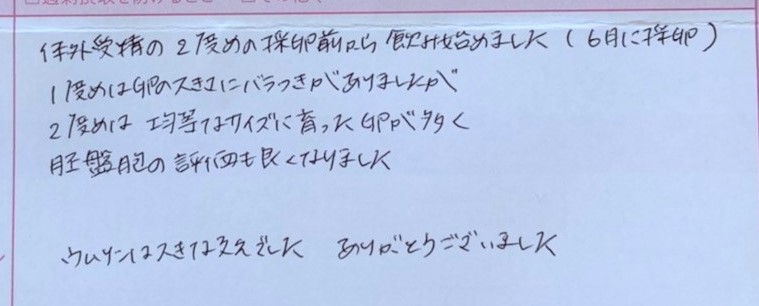 体外受精の2度めの採卵前から飲み始めました(6月に採卵)
1度めは卵の大きさにバラつきがありましたが
2度めは 均等なサイズに育った卵が多く
胚盤胞の評価も良くなりました
ウムリンは大きな支えでした ありがとうございました